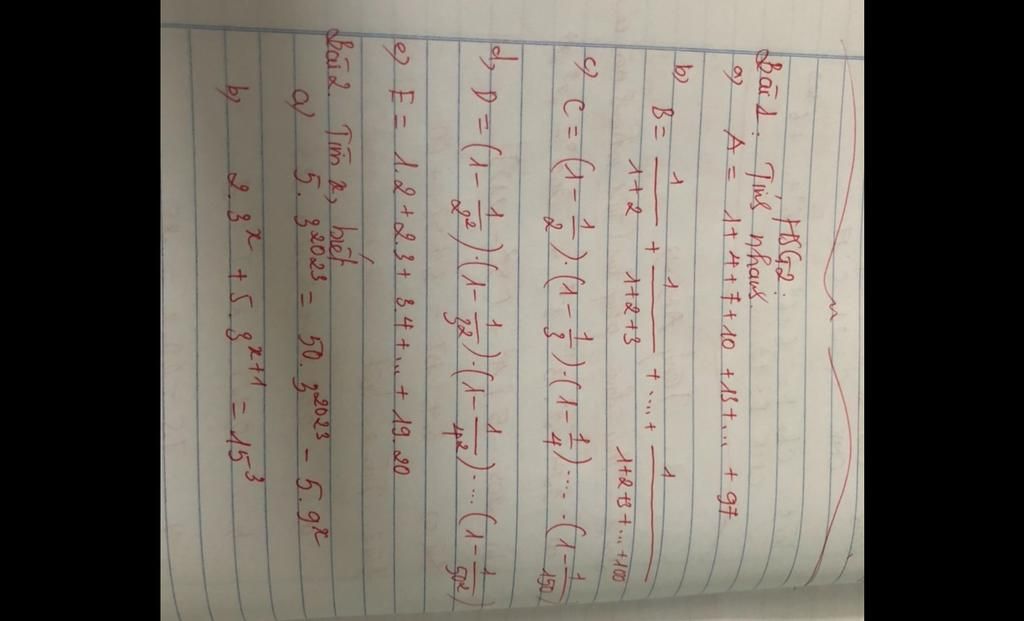 HSG2:
Bài 1: Tính nhanh.
a) A = 1+4+7+10+13+... + 97
b) B = 1/(1+2) + 1/(1+2+3) + .... + 1/(1+2+3+...+100)
c) C = (1 - 1/2).(1 - 1/3).(1 - 1/4)..... (1 - 1/150)
d) D = (1 - 1/2²).(1 - 1/3²).(1 - 1/4²)....(1 - 1/50²)
e) E = 1.2 + 2.3 + 3.4 + ... + 19.20
Bài 2. Tìm x, biết
a) 5. 3²⁰²³ = 50. 3²⁰²³ - 5. 9ˣ
b) 2. 3ˣ + 5. 3ˣ⁺¹ = 15³